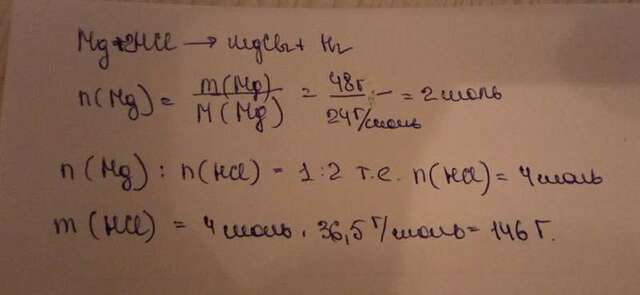 Mg + 2HCl → MgCl₂ + H₂
n(Mg) = m(Mg)/M(Mg) = 48г/24г/моль = 2 моль
n(Mg) : n(HCl) = 1:2 т.е. n(HCl) = 4 моль
m(HCl) = 4 моль · 36,5 г/моль = 146 г.